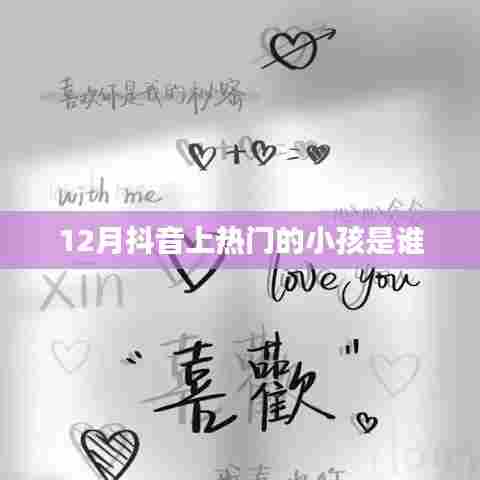 喜欢你是我的秘密
with me
12月抖音上热门的小孩是谁
xin
love you
"喜歡"